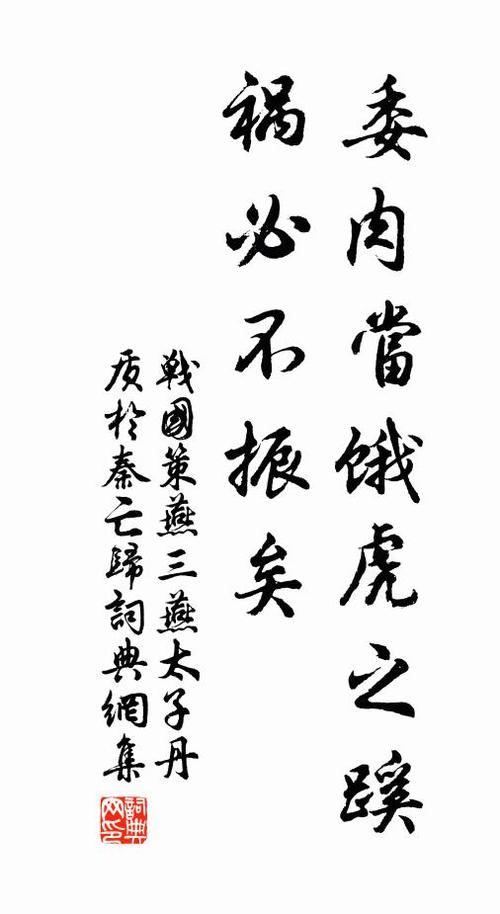 委肉當餓虎之蹊
禍必不振矣
戰國策燕三燕太子丹
质於秦亡歸詞典網集
詞典
网印